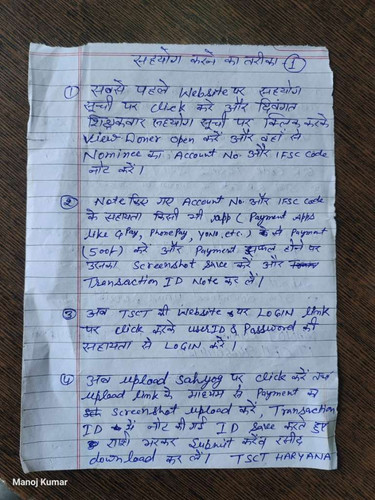 सहयोग करने का तरीका - 1
① सबसे पहले Website पर सहयोग
सूची पर click करें और दिवंगत
शिक्षकवार सहयोग सूची पर क्लिक करके
View Doner open करें और वहां से
Nominee का Account No. और IFSC Code
नोट करें।
② Note किए गए Account No और IFSC code
के सहायता किसी भी app ( Payment apps
like GPay, PhonePay, yono, etc.) से Payment
(500/-) करें और Payment सफल होने पर
उसका Screenshot Save करें और
Transaction ID Note कर लें।
③ अब TSCT की website पर LOGIN link
पर click करके userID & Password की
सहायता से LOGIN करें।
④ अब upload sahyog पर click करें तथा
upload link के माध्यम से Payment का
Screenshot upload करें, Transaction
ID में नोट की गई ID save करते हुए
राशि भरकर Submit करें व रसीद
download कर लें। TSCT HARYANA
Manoj Kumar